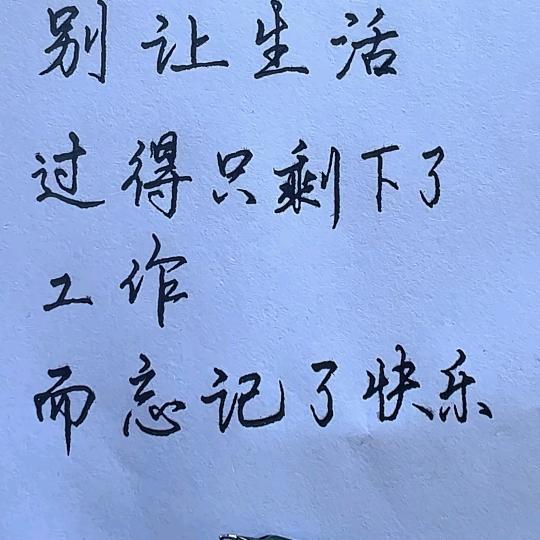 别让生活
过得只剩下了
工作
而忘记了快乐